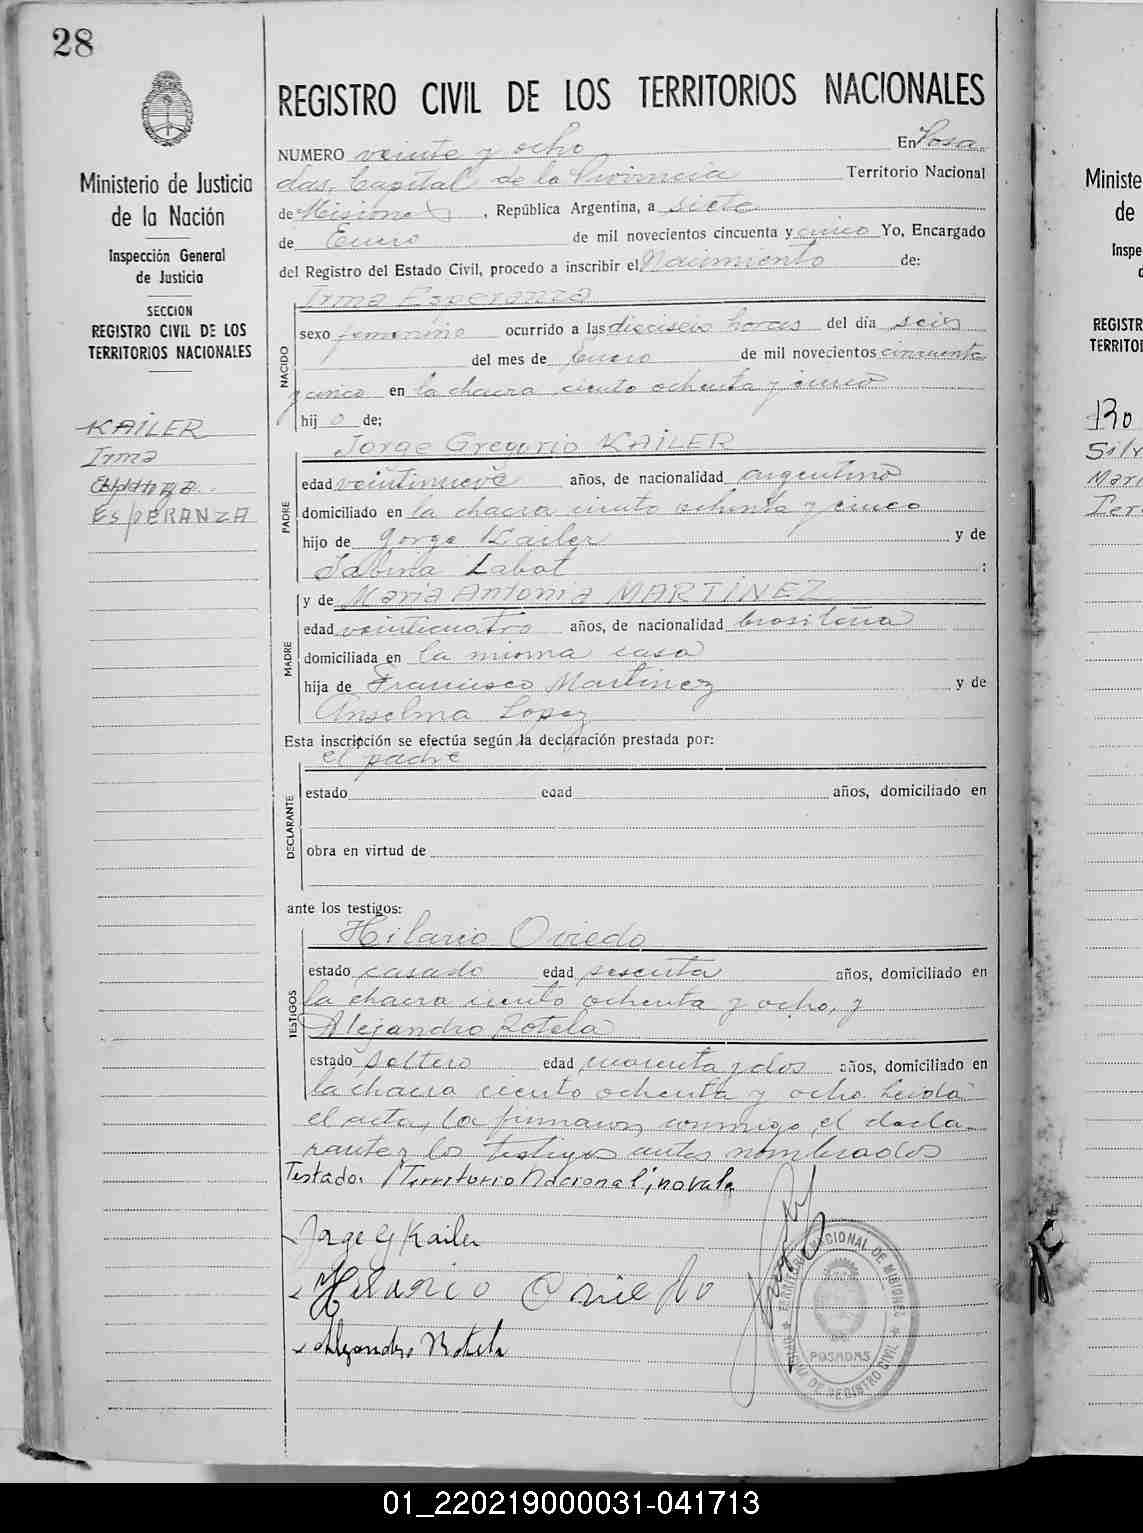 28
Ministerio de Justicia
de la Nación
Inspección General
de Justicia
SECCION
REGISTRO CIVIL DE LOS
TERRITORIOS NACIONALES
KAILER
Irma
Esperanza
ESPERANZA
REGISTRO CIVIL DE LOS TERRITORIOS NACIONALES
NUMERO veinte y ocho En Posa
das, Capital de la Provincia Territorio Nacional
de Misiones, República Argentina, a siete
de Enero de mil novecientos cincuenta y cinco Yo, Encargado
del Registro del Estado Civil, procedo a inscribir el Nacimiento de:
Irma Esperanza
NACIDO
sexo femenino ocurrido a las dieciseis horas del día seis
del mes de Enero de mil novecientos cincuenta
y cinco en la chacra ciento ochenta y cinco
hij a de;
Jorge Gregorio KAILER
PADRE
edad veintinueve años, de nacionalidad argentino
domiciliado en la chacra ciento ochenta y cinco
hijo de Jorge Kailer y de
Sabina Labat ;
MADRE
y de Maria Antonia MARTINEZ
edad veinticuatro años, de nacionalidad brasileña
domiciliada en la misma casa
hija de Francisco Martinez y de
Anselma Lopez
Esta inscripción se efectúa según la declaración prestada por:
el padre
DECLARANTE
estado edad años, domiciliado en
obra en virtud de
ante los testigos:
Hilario Oviedo
TESTIGOS
estado casado edad sesenta años, domiciliado en
la chacra ciento ochenta y ocho, y
Alejandro Rotela
estado soltero edad cuarenta y dos años, domiciliado en
la chacra ciento ochenta y ocho. Leida
el acta, la firmaron conmigo, el decla-
rante y los testigos antes nombrados
Testado: "Territorio Nacional", no vale
Jorge G Kailer
Hilario Oviedo
Alejandro Rotela
TERRITORIO NACIONAL DE MISIONES
POSADAS
OFICINA DE REGISTRO CIVIL
Ministe
de
Inspe
d
REGISTR
TERRITOR
Ro
Silv
Mari
Ter
01_220219000031-041713